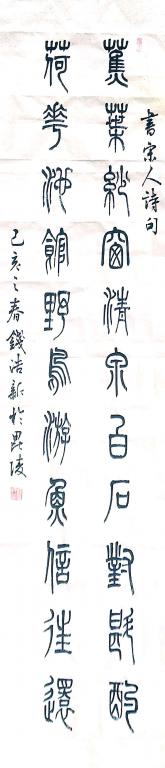 書宋人詩句
蕉葉紗窗清泉白石對斟酌
荷花池館野鳥游魚信往還
己亥之春錢浩新於毘陵